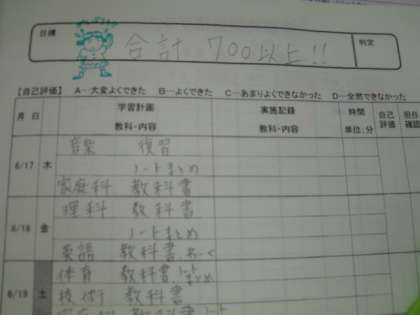 目標 合計 700以上!! 判定
【自己評価】 A…大変よくできた B…よくできた C…あまりよくできなかった D…全然できなかった
月 日 学習計画 実施記録 時間 自己 担任
教科・内容 教科・内容 単位:分 評価 確認
音楽 復習
6/17 木 ノートまとめ
家庭科 教科書
理科 教科書
6/18 金 ノートまとめ
英語 教科書
体育 教科書 ノートまとめ
6/19 土 技術 教科書